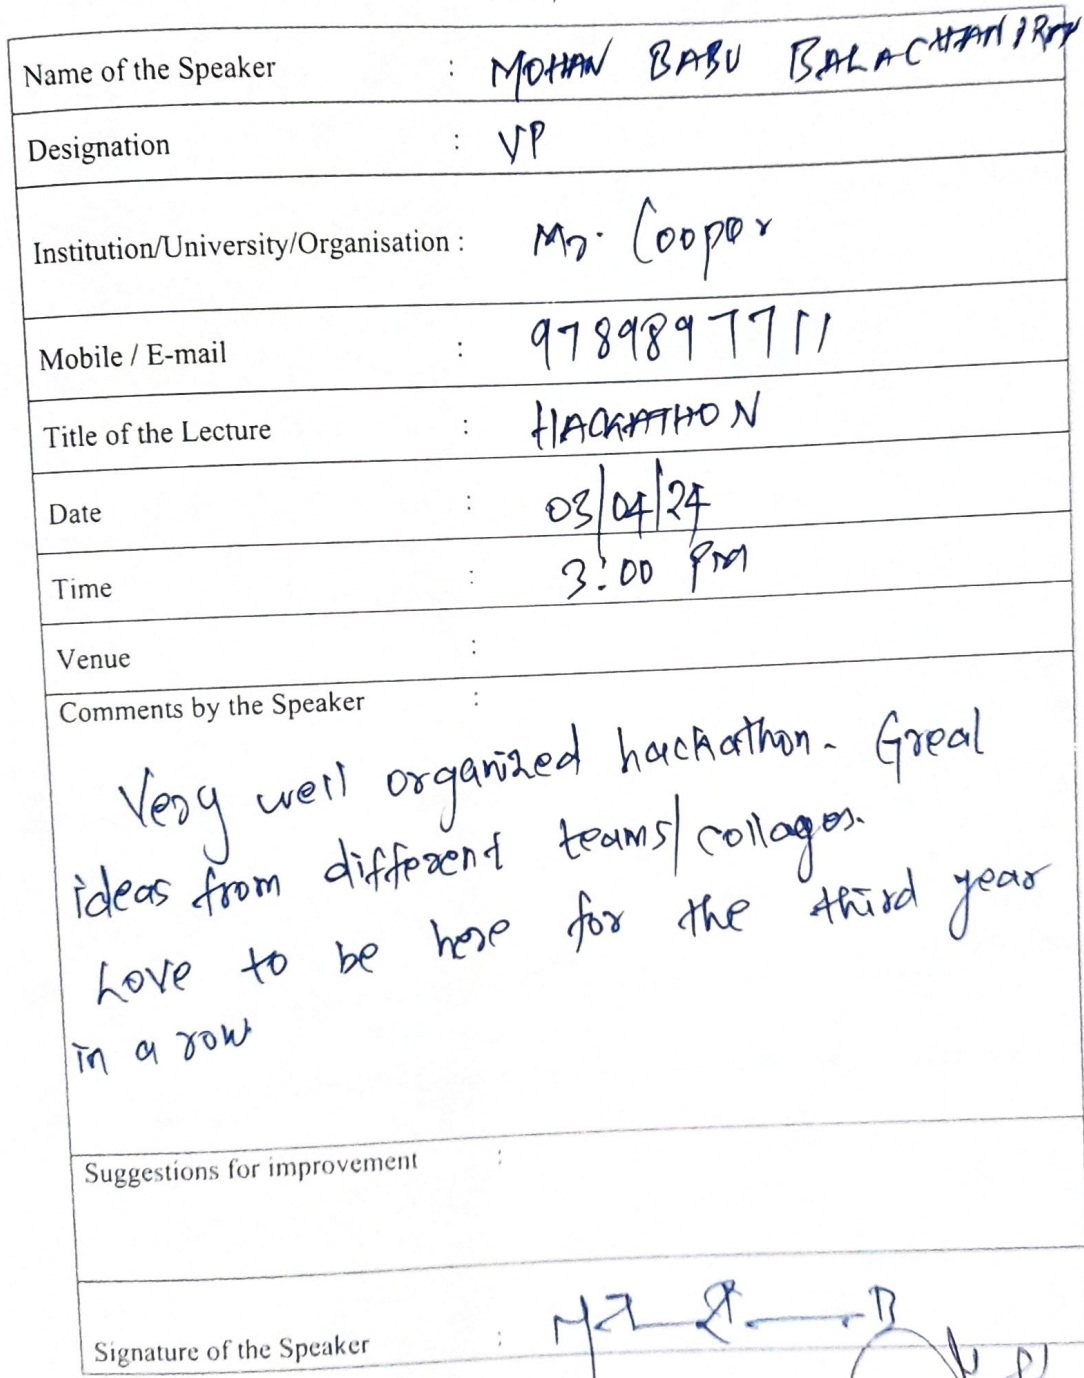 Name of the Speaker : MOHAN BABU BALACHANDRAN
Designation : VP
Institution/University/Organisation : Mr. Cooper
Mobile / E-mail : 9789897711
Title of the Lecture : HACKATHON
Date : 03/04/24
Time : 3:00 PM
Venue :
Comments by the Speaker :
Very well organized hackathon. Great
ideas from different teams/collages.
Love to be here for the third year
in a row
Suggestions for improvement :
Signature of the Speaker :